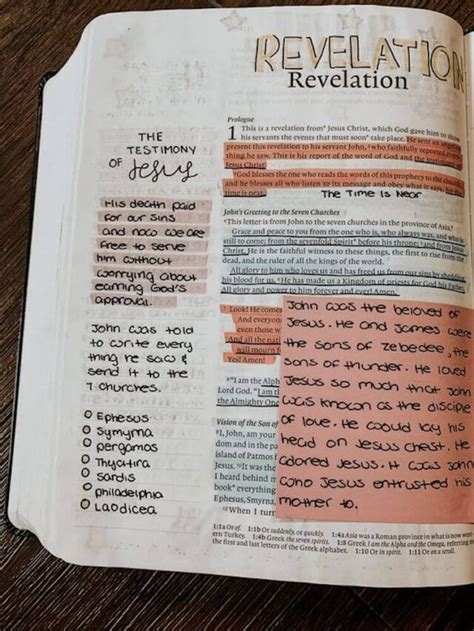 REVELATION
Revelation
THE
TESTIMONY
OF Jesus
His death paid
for our sins
and now we are
free to serve
him without
worrying about
earning God's
approval.
John was told
to write every
thing he saw &
send it to the
7 churches.
Ephesus
Symyrna
pergamos
Thyatira
Sardis
philadelphia
Laodicea
Prologue
1 This is a revelation from Jesus Christ, which God gave him to
his servants the events that must soon take place. He sent an
present this revelation to his servant John, who faithfully reported
thing he saw. This is his report of the word of God and the
Jesus Christ.
God blesses the one who reads the words of this prophecy to the
and he blesses all who listen to its message and obey what it says,
time is near. The Time is Near
John's Greeting to the Seven Churches
This letter is from John to the seven churches in the province of Asia.
Grace and peace to you from the one who is, who always was, and who is
still to come; from the sevenfold Spirit before his throne; and from
Christ. He is the faithful witness to these things, the first to rise from
dead, and the ruler of all the kings of the world.
All glory to him who loves us and has freed us from our sins by shedding
his blood for us. He has made us a Kingdom of priests for God his
All glory and power to him forever and ever! Amen.
Look! He comes
And everyone
even those w
And all the nati
will mourn f
Yes! Amen!
"I am the Alph
Lord God. "I am t
the Almighty One
Vision of the Son of
I, John, am your
and in the patient
island of Patmos f
Jesus. It was the
I heard behind m
book everything
Ephesus, Smyrna,
When I turr
John was the beloved of
Jesus. He and James were
the sons of zebedee, the
sons of thunder. He loved
Jesus so much that John
was known as the discipe
of love. He would lay his
head on Jesus chest. He
adored Jesus. It was John
who Jesus entrusted his
mother to.
1:1a Or of. 1:1b Or suddenly, or quickly. 1:4a Asia was a Roman province in what is now
ern Turkey. 1:4b Greek the seven spirits. 1:8 Greek I am the Alpha and the Omega, referring
the first and last letters of the Greek alphabet. 1:10 Or in spirit. 1:11 Or on a scroll.